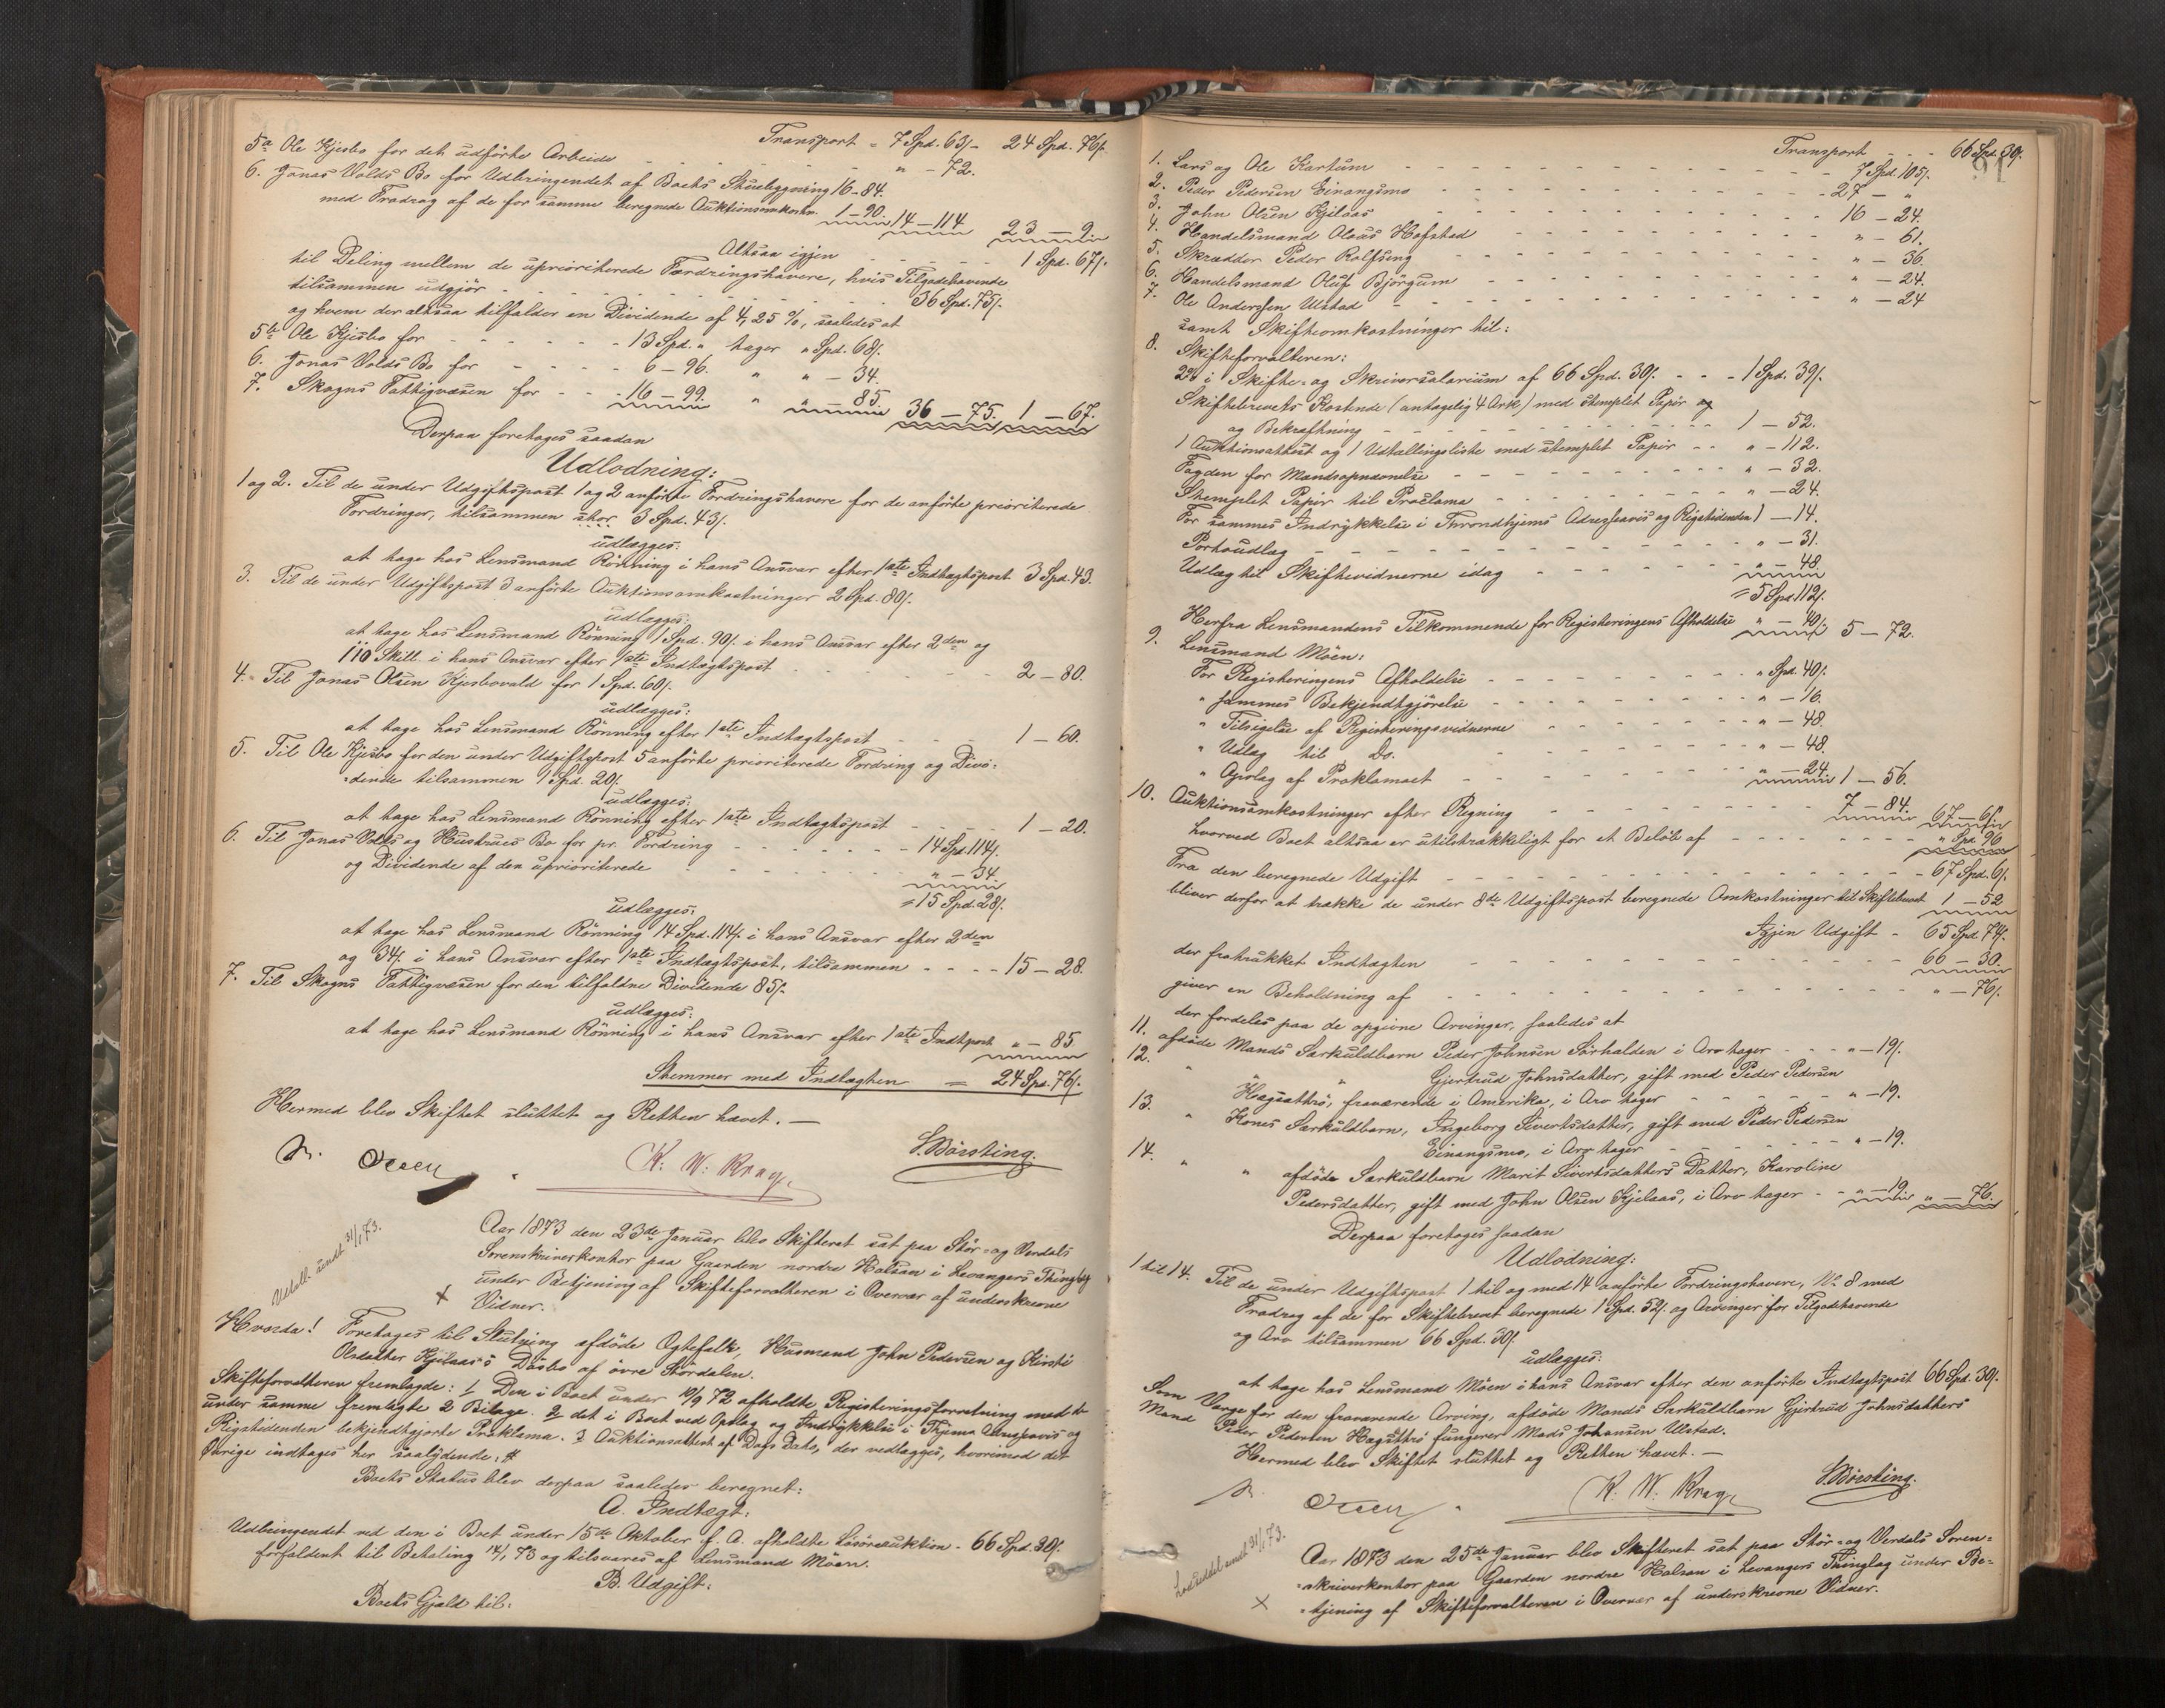 Transport = 7 Spd. 63/- 24 Spd. 76/.
5a Ole Kjesbo for det udförte Arbeide - - - - - " - 72.
6. Jonas Volds Bo for Udbringendet af Boets Skuebygning 16-84.
med Fradrag af de for samme beregnede Auktionsomkostn. 1-90. 14-114 23-9.
Altsaa igjen - - - - - 1 Spd. 67/.
til Deling mellem de uprioriterede Fordringshavere, hvis Tilgodehavende
tilsammen udgjör - - - - - 36 Spd. 75/.
og hvem der altsaa tilfalder en Dividende af 4,25 %, saaledes at
5b Ole Kjesbo for - - - - - 13 Spd. " tager " Spd. 68/.
6. Jonas Volds Bo for - - - - 6-96. " " - 34.
7. Skogns Fattigvæsen for - - - 16-99. " " - 85. 36-75. 1-67.
Derpaa foretoges saadan
Udlodning:
1 og 2. Til de under Udgiftspost 1 og 2 anförte Fordringshavere for de anförte prioriterede
Fordringer, tilsammen stor 3 Spd. 43/.
udlægges:
at tage hos Lensmand Rönning i hans Ansvar efter 1ste Indtægtspost 3 Spd. 43.
3. Til de under Udgiftspost 3 anförte Auktionsomkostninger 2 Spd. 80/.
udlægges:
at tage hos Lensmand Rönning 1 Spd. 90/. i hans Ansvar efter 2den og
110 Skill. i hans Ansvar efter 1ste Indtægtspost - - - - - 2-80.
4. Til Jonas Olsen Kjesbovald for 1 Spd. 60/.
udlægges:
at tage hos Lensmand Rönning efter 1ste Indtægtspost - - - 1-60.
5. Til Ole Kjesbo for den under Udgiftspost 5 anförte prioriterede Fordring og Divi-
-dende tilsammen 1 Spd. 20/.
udlægges:
at tage hos Lensmand Rönning efter 1ste Indtægtspost - - - 1-20.
6. Til Jonas Volds og Hustrues Bo for pr. Fordring - - - - - 14 Spd. 114/.
og Dividende af den uprioriterede - - - - - " - 34.
= 15 Spd. 28/.
udlægges:
at tage hos Lensmand Rönning 14 Spd. 114/. i hans Ansvar efter 2den
og 34/. i hans Ansvar efter 1ste Indtægtspost, tilsammen - - - - 15-28.
7. Til Skogns Fattigvæsen for den tilfaldne Dividende 85/.
udlægges:
at tage hos Lensmand Rönning i hans Ansvar efter 1ste Indtpost " - 85.
Stemmer med Indtægten = 24 Spd. 76/.
Hermed blev Skiftet sluttet og Retten hævet. —
K. W. Krag. S. Börsting.
Udtall. sendt 31/1 73.
Aar 1873 den 23de Januar blev Skifteret sat paa Stör- og Verdals
Sorenskriverkontor paa Gaarden nordre Halsan i Levangers Thinglag
under Betjening af Skifteforvalteren i Overvær af underskrevne
Vidner.
Hvorda! Foretoges til Slutning afdöde Ægtefolk, Husmand John Pedersen og Kirsti
Olsdatter Kjelaas's Dödsbo af övre Stördalen.
Skifteforvalteren fremlagde: 1/ Den i Boet under 10/9 72 afholdte Registeringsforretning med de
under samme fremlagte 2 Bilage. 2/ det i Boet ved Opslag og Indrykkelse i Thjems Adresseavis og
Rigstidenden bekjendtgjorte Proklama. 3 Auktionsattest af Dags Dato, der vedlægges, hvorimod det
Övrige indtages her saalydende: #
Boets Status blev derpaa saaledes beregnet:
A. Indtægt:
Udbringendet ved den i Boet under 15de Oktober f. A. afholdte Lösöreauktion - 66 Spd. 30/.
forfaldent til Betaling 14/1 73 og tilsvares af Lensmand Möen.
B. Udgift:
Boets Gjæld til:
91
Transport - - - 66 Spd. 30/.
1. Lars og Ole Kartum - - - - - 7 Spd. 105/.
2. Peder Pedersen Einangsmo - - - - - 27 - "
3. John Olsen Kjelaas - - - - - 16-24.
4. Handelsmand Olaus Hofstad - - - - - " - 61.
5. Skrædder Peder Rolfseng - - - - - " - 36.
6. Handelsmand Oluf Björgum - - - - - " - 24.
7. Ole Anderssen Ulstad - - - - - " - 24
samt Skifteomkostninger til:
8. Skifteforvalteren:
2% i Skifte- og Skriversalarium af 66 Spd. 30/. - - - 1 Spd. 39/.
Skiftebrevets Kostende (antagelig 4 Ark) med stemplet Papir og
og Bekræftning - - - - - 1-52.
1 Auktionsattest og 1 Udtællingsliste med stemplet Papir - - " - 112.
Fogden for Mandsopnævnelse - - - - - " - 32.
Stemplet Papir til Proclama - - - - - " - 24.
For sammes Indrykkelse i Throndhjems Adresseavis og Rigstidenden 1-14.
Portoudlæg - - - - - " - 31.
Udlæg til Skiftevidnerne idag - - - - - " - 48.
= 5 Spd. 112/.
Herfra Lensmandens Tilkommende for Registeringens Afholdelse " - 40/. 5-72.
9. Lensmand Möen:
For Registeringens Afholdelse - - - - - " Spd. 40/.
" sammes Bekjendtgjörelse - - - - - " - 16.
" Tilsigelse af Registeringsvidnerne - - - - - " - 48.
" Udlæg til Do. - - - - - " - 48.
" Opslag af Proklamaet - - - - - " - 24. 1-56.
10. Auktionsomkostninger efter Regning - - - - - 7-84. 67-6/.
hvorved Boet altsaa er utilstrækkeligt for et Belöb af - - - - - " Spd. 96
Fra den beregnede Udgift - - - - - 67 Spd. 6/.
bliver derfor at trække de under 8de Udgiftspost beregnede Omkostninger til Skiftebrevet 1-52
Igjen Udgift - 65 Spd. 74/.
der fratrukket Indtægten - - - - - 66-30.
giver en Beholdning af - - - - - " - 76/.
der fordeles paa de opgivne Arvinger, saaledes at
11. afdöde Mands Særkuldbarn Peder Johnsen Sörhalden i Arv tager - - - " - 19/.
12. " " " Gjertrud Johnsdatter, gift med Peder Pedersen
Hægsattrö, fraværende i Amerika, i Arv tager - - - - - " - 19.
13. " Kones Særkuldbarn, Ingeborg Sivertsdatter, gift med Peder Pedersen
Einangsmo, i Arv tager - - - - - " - 19.
14. " " afdöde Særkuldbarn Marit Sivertsdatters Datter, Karoline
Pedersdatter, gift med John Olsen Kjelaas, i Arv tager - - " - 19. " - 76.
Derpaa foretoges saadan
Udlodning:
1 til 14. Til de under Udgiftspost 1 til og med 14 anförte Fordringshavere, No 8 med
Fradrag af de for Skiftebrevet beregnede 1 Spd. 52/. og Arvinger for Tilgodehavende
og Arv tilsammen 66 Spd. 30/.
udlægges:
at tage hos Lensmand Möen i hans Ansvar efter den anförte Indtægtspost 66 Spd. 30/.
Som Værge for den fraværende Arving, afdöde Mands Særkuldbarn Gjertrud Johnsdatters
Mand Peder Pedersen Hægsattrö fungerer Mads Johansen Ulstad.
Hermed blev Skiftet sluttet og Retten hævet. —
K. W. Krag. S. Börsting.
31/1 73.
Aar 1873 den 25de Januar blev Skifteret sat paa Stör- og Verdals Soren-
-skriverkontor paa Gaarden nordre Halsan i Levangers Thinglag under Be-
-tjening af Skifteforvalteren i Overvær af underskrevne Vidner.